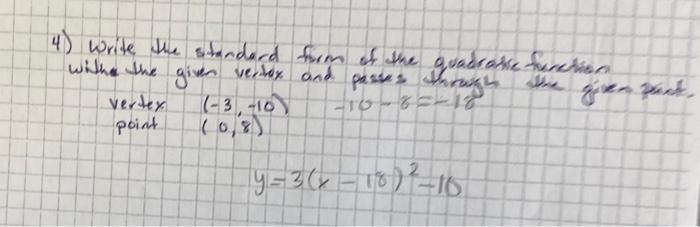 4) Write the standard form of the quadratic function
withe the given vertex and passes through the given point.
vertex (-3, -10) -10-8=-18
point (0,8)
y=3(x-18)²-10